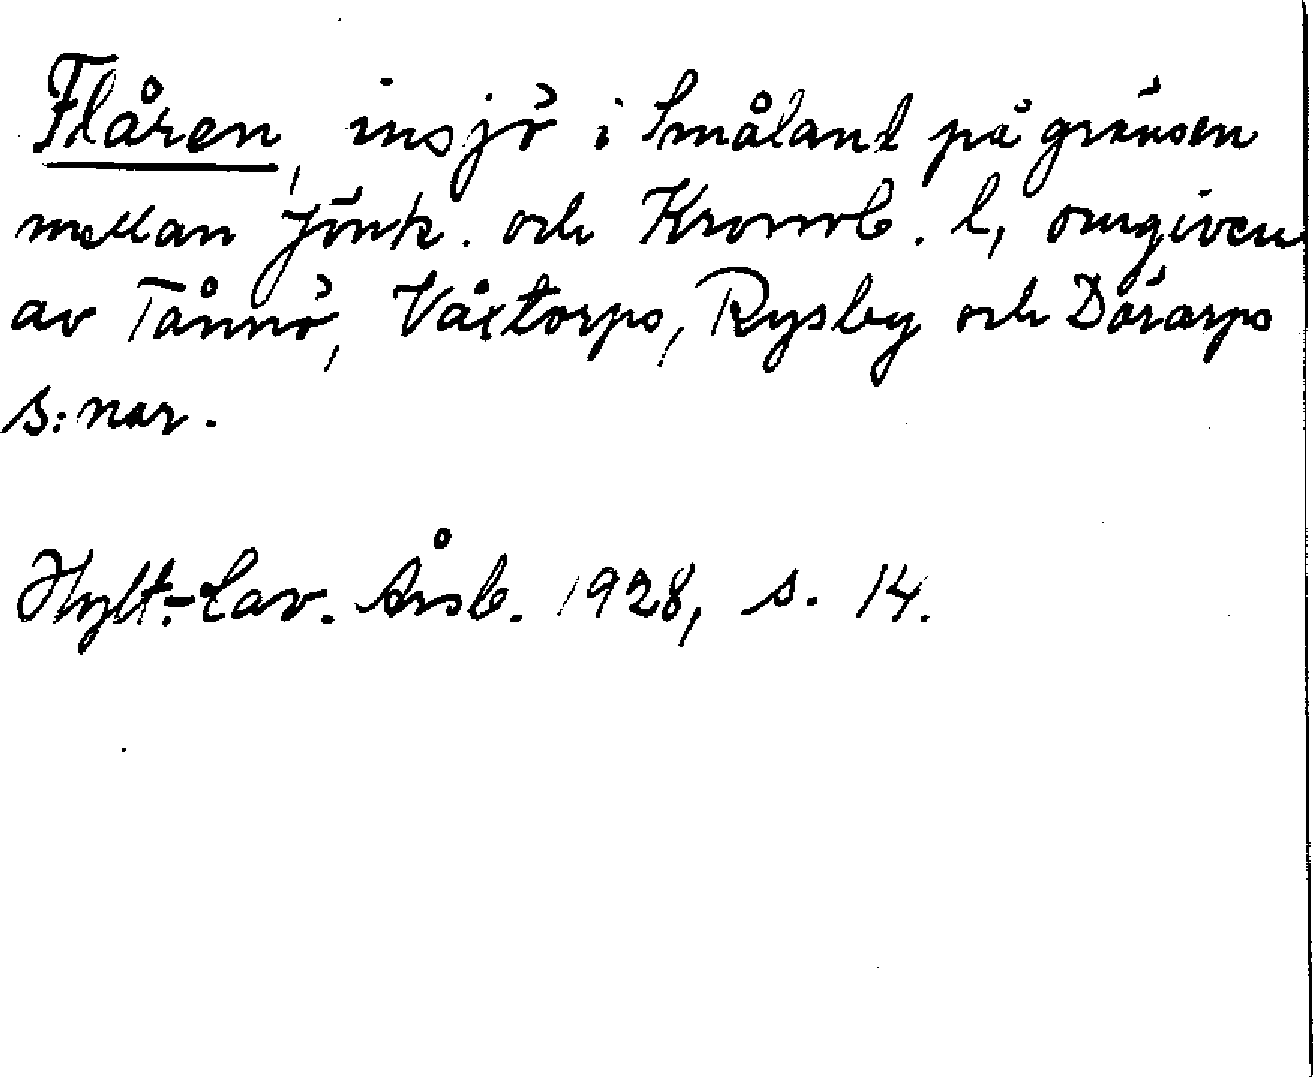 Flåren, insjö i Småland på gränsen
mellan Jönk. och Kronob. l, omgiven
av Tånnö, Våxtorps, Rysby och Dörarps
s:nar.
Hylt.-Cav. Årsb. 1928, s. 14.